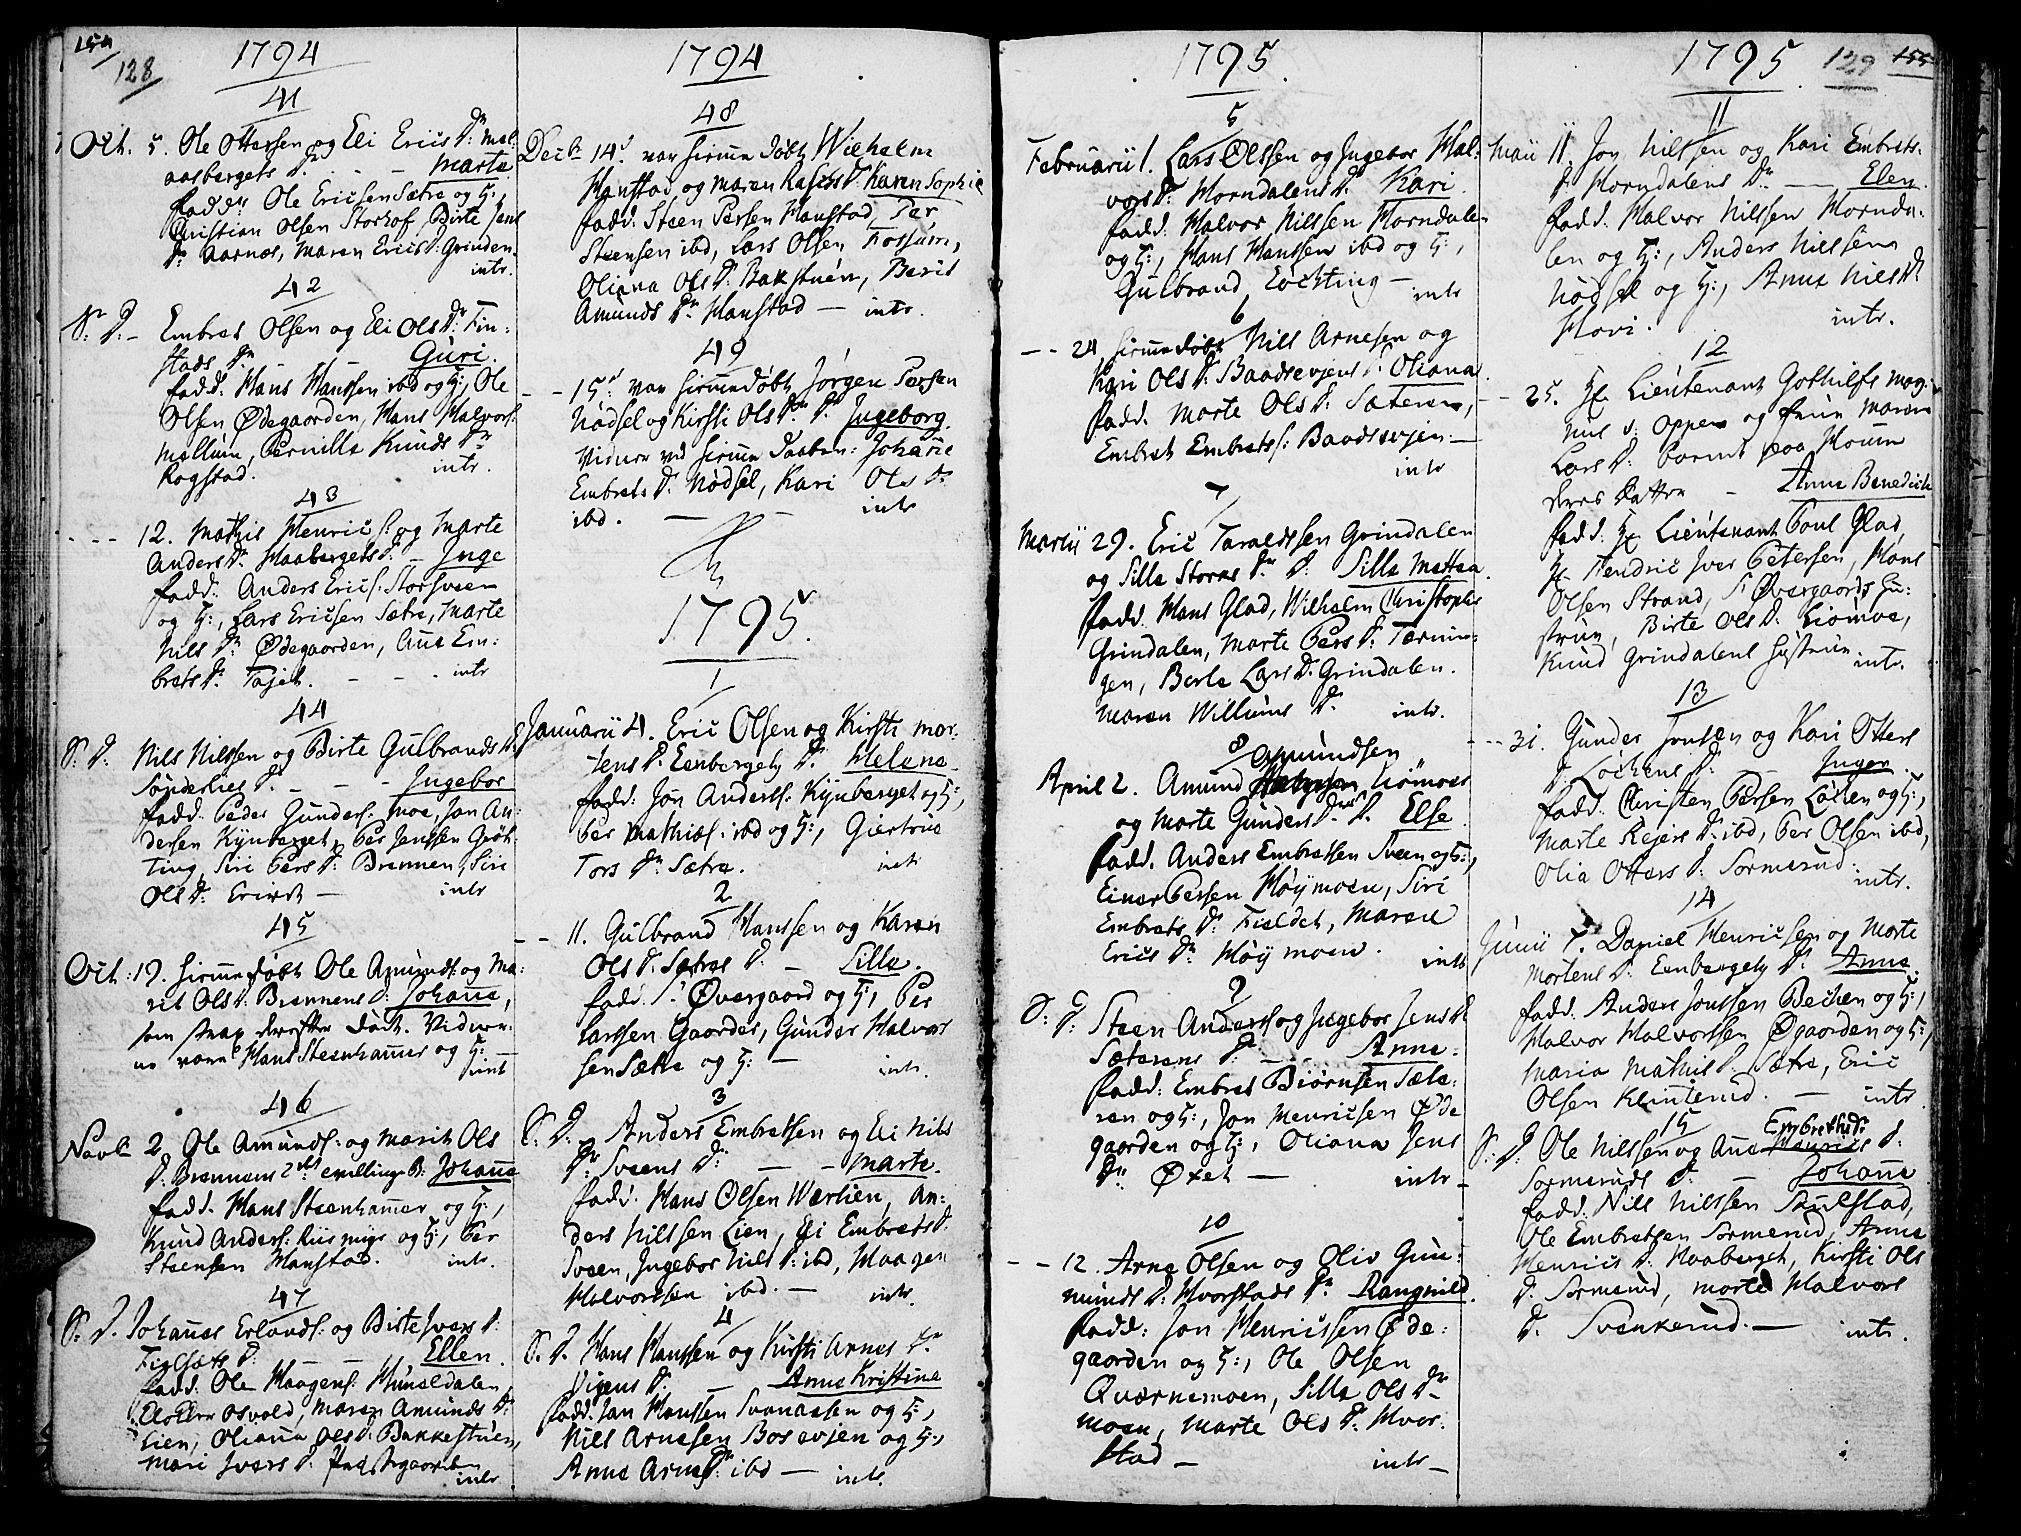 154
128
1794
41
Oct. 5. Ole Ottersen og Eli Erics Dr. Mal-
aasbergets Dr. - - Marte
fadd. Ole Ericsen Sætre og H:,
Christian Olsen Storhof, Birte Jens
Dr Aarnæs, Maren Erics D: Grinden
intr.
42
S: D: - Embret Olsen og Eli Ols Dr: Fin-
stads Dr Guri.
fadd. Hans Hanssen ibd og H:, Ole
Olsen Ødegaarden, Hans Halvors:
Mellum, Pernille Knuds Dr
Rogstad. intr.
43
- - - 12. Mathis Henrics: og Marte
Anders D. Haabergets D: - Inge
fadd. Anders Erics: Storsveen
og H:, Lars Ericsen Sætre, Marte
Nils Dr Ødegaarden, Ane Em-
brets D. Tajet. - - - intr
44
S: D: Nils Nilssen og Birte Gulbrands D:
Sønderlies D. - - - Ingebor
fadd. Peder Gunders: Moe, Jon An-
dersen Kynberget, Per Jenssen Grøt-
ting, Siri Pers D: Brennen, Siri
Ols D: - intr
45
Oct: 19. hjemmedøbt Ole Amunds: og Ma-
rit Ols D: Brennens D: Johanne,
som strax derefter døde. Vidner-
ne vare Hans Steenhammer og H:
intr
46
Novb. 2. Ole Amunds: og Marit Ols
D: Brennens 2den tvillinge D: Johanne
fadd. Hans Steenhammer og H:,
Knud Anders: Riismyr og H:, Per
Steensen Hanstad. intr.
47
S. D. Johannes Erlands: og Birte Ivers D:
D: - - Ellen.
fadd. Ole Haagens: Hunsldalen,
Osvold, Maren Amunds D:
Lien, Oliana Ols D: Bakkestuen,
Mari Ivers D:
intr
1794
48
Decb. 14. var hjemmedøbt Wilhelm
Hanstad og Maren D: Karen Sophie
fadd. Steen Persen Hanstad, Per
Steensen ibd, Lars Olsen Fossum,
Oliana Ols D: Bakstuen, Berit
Amunds Dr Hanstad - intr.
49
- - 15. var hjemmedøbt Jørgen Persen
Nødsel og Kirsti Ols Drs D: Ingeborg.
Vidner ved hjemme Daaben: Johanne
Embrets D. Nødsel, Kari Ols Dr
ibd. - - intr
1795.
1
Januarii 4. Eric Olsen og Kirsti Mor-
tens D: Eenbergets D: Helene
fadd: Jon Anderss: Kynberget og H:,
Per Mathias: ibd og H:, Giertrue
Tors Dr Sætre. intr
2
- - 11. Gulbrand Hanssen og Karen
Ols D. Sætres D. - Sille.
fadd. S: Øvergaard og H:, Per
Larssen Gaarder, Gunder Halvor
sen Sætre og H: - intr.
3
S: D: Anders Embretsen og Eli Nils
Dr: Sveens D: - - Marte.
fadd. Hans Olsen Wærlien, An-
ders Nilssen Lien, Eli Embrets D:
Sveen, Ingebor Nils D: ibd, Haagen
Halvorssen ibd. - intr.
4
S. D. Hans Hanssen og Kirsti Arnes Dr
Vigens D: - Anne Kristine
fadd. Jan Hanssen Svenaasen og H:,
Nils Arnesen Bosevjen og H:,
Anne Arnes D: ibd - intr.
1795.
5
Februarii 1. Lars Olssen og Ingebor Hal-
vors D. Horndalens D. Kari.
fadd. Halvor Nilssen Horndalen
og H:, Hans Hanssen ibd og H:,
Gulbrand Løchting - intr
6
- - 24, hjemmedøbt Nils Arnesen og
Kari Ols D: Baadsevjens D: Oliana.
fadd. Marte Ols D: Sæteren,
Embret Embrets: Baadsevjen -
intr
7
Martii 29. Eric Taraldssen Grindalen
og Sille Stores Dr D: Sille Mattea.
fadd. Hans Glad, Wilhelm Christophs
Grindalen, Marte Pers D: Tørnin-
gen, Berte Lars D: Grindalen.
Maren Willums Dr intr.
8
Amundsen
April 2. Amund Liømoes
og Marte Gunders Drs D. Else.
fadd. Anders Embretsen Sveen og H:,
Einer Persen Høymoen, Siri
Embrets D: Fieldet, Maren
Erics Dr Høymoen. intr
9
S: D: Steen Anders: og Ingebor Jens D:
Sæterens D: - Anne.
fadd: Embret Biørnsen Sæte-
ren og H:, Jon Henricsen Øde
gaarden og H:, Oliana Jens
Dr Øxet - intr -
10
- - 12. Arne Olsen og Oliv Gun-
munds D: Hvorstads Dr Rangnild.
fadd: Jon Henricssen Øde-
gaarden og H:, Ole Olsen
Qværnemoen, Sille Ols Dr
Moen, Marte Ols D. Hvor-
stad - intr -
1795.
129
155
11
Maii 11. Joy Nilssen og Kari Embrets-
D. Horndalens Dr - Elen.
fadd. Halvor Nilssen Hornda-
len og H:, Anders Nilssen
Nødsel og H:, Anne Nils D:
Hovi. intr.
12
- - 25. Hr Lieutenant Gothilfs Mag-
nus v: Oppen og frue Maren
Lars D: barnet paa Houm
deres Datter - Anne Benedicte
fadd. Hr Lieutenant Poul Glad,
Hr Hendric Iver Petersen, Hans
Olsen Strand, S. Øvergaards Hu-
strue, Birte Ols D. Liømoe,
Knud Grindalens Hustrue intr.
13
- - - 31. Gunder Jonsen og Kari Otters
D: Løchens D: - Inger.
fadd. Christen Persen Løcken og H:,
Marte Rejers D: ibd, Per Olsen ibd,
Olia Otters D: Sormerud. intr.
14
Junii 7. Daniel Henricsen og Marte
Mortens D: Eenbergets D: Anne
fadd. Anders Jonssen Becken og H:,
Halvor Halvorssen Øgaarden og H:,
Maria Mathis D: Sætre, Eric
Olsen Kletterud. - intr.
15
Embreths D:
S: D: Ole Nilssen og Ane Henrics D:
Sormeruds D: - Johanne
fadd. Nils Nilssen Skulstad,
Ole Embretsen Sormerud, Anne
Henrics D: Haaberget, Kirsti Ols
D: Sormerud, Marte Halvors
D. Svenkerud. - intr.